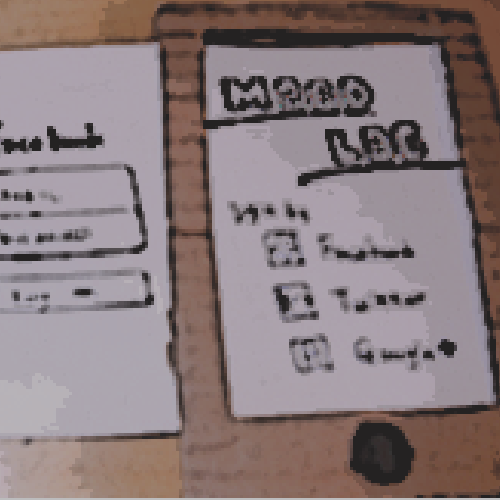 Facebook
Log in
MOOD
LOG
Sign in
Facebook
Twitter
Google+